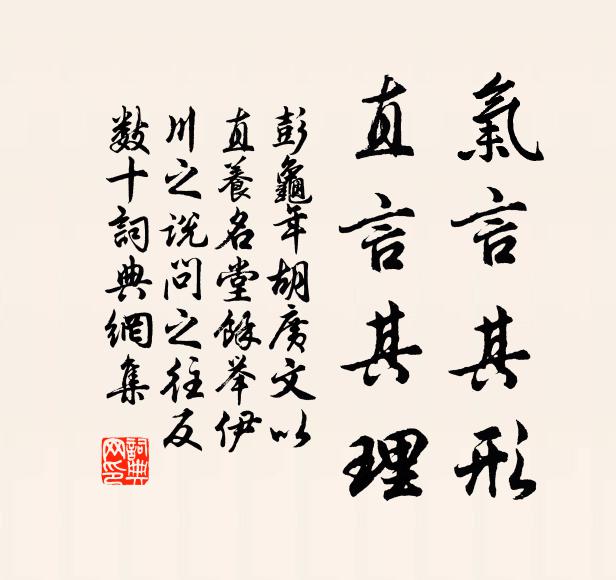 氣言其形
直言其理
彭龜年胡廣文以
直養名堂餘举伊
川之說問之往反
數十詞典網集
詞典網印